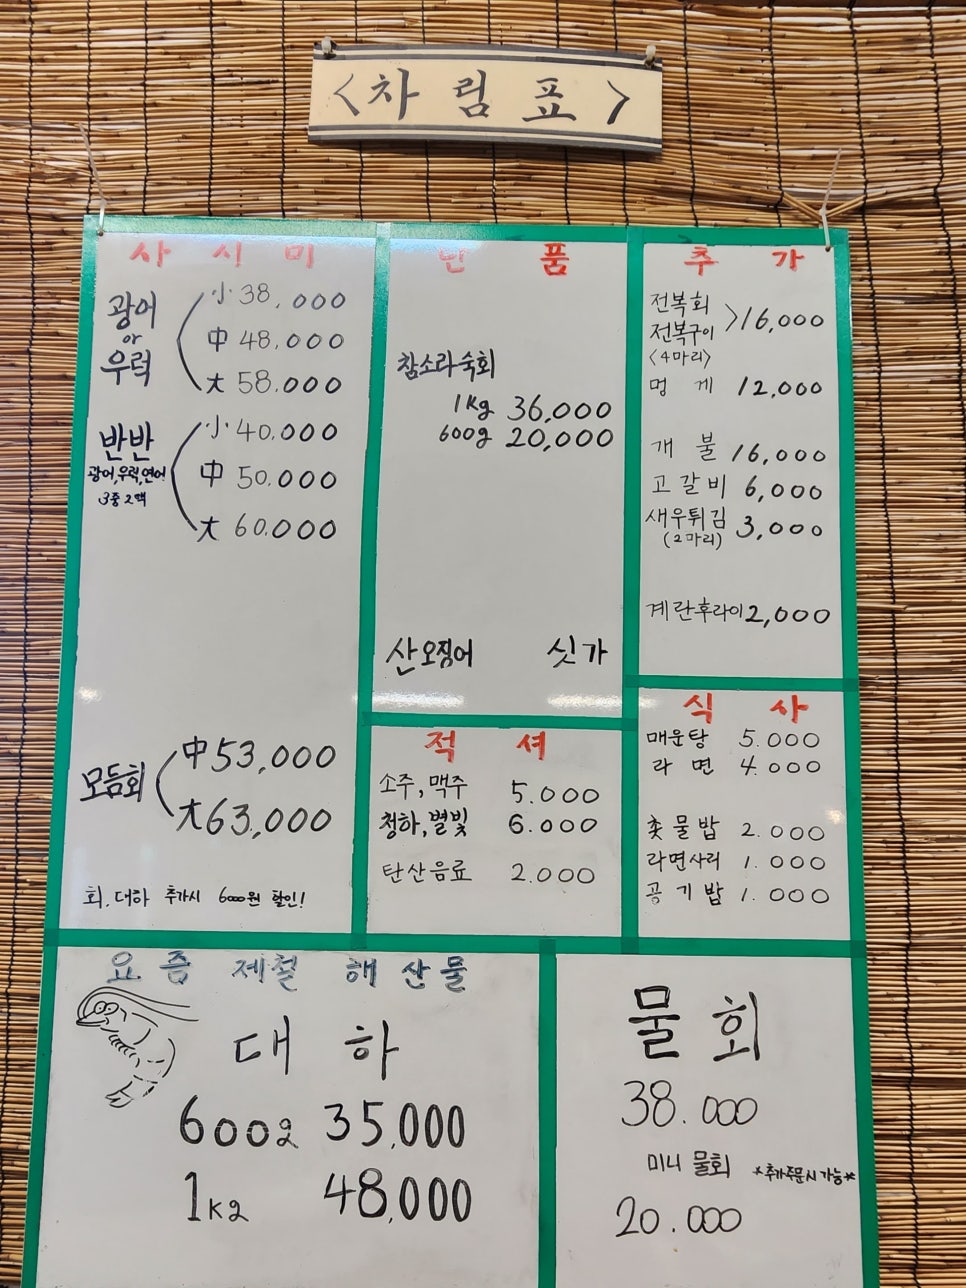 <차림표>
사시미
광어
or
우럭
小 38,000
中 48,000
大 58,000
반반
광어,우럭,연어
3종 2택
小 40,000
中 50,000
大 60,000
모듬회
中 53,000
大 63,000
회, 대하 추가시 6000원 할인!
단품
참소라숙회
1kg 36,000
600g 20,000
산오징어 싯가
적셔
소주,맥주 5.000
청하,별빛 6.000
탄산음료 2.000
추가
전복회
전복구이 >16,000
<4마리>
멍게 12,000
개불 16,000
고갈비 6,000
새우튀김 3,000
(2마리)
계란후라이 2,000
식사
매운탕 5.000
라면 4.000
햣물밥 2.000
라면사리 1.000
공기밥 1.000
요즘 제철 해산물
대하
600g 35,000
1kg 48,000
물회
38.000
미니 물회 *추가주문시 가능*
20.000